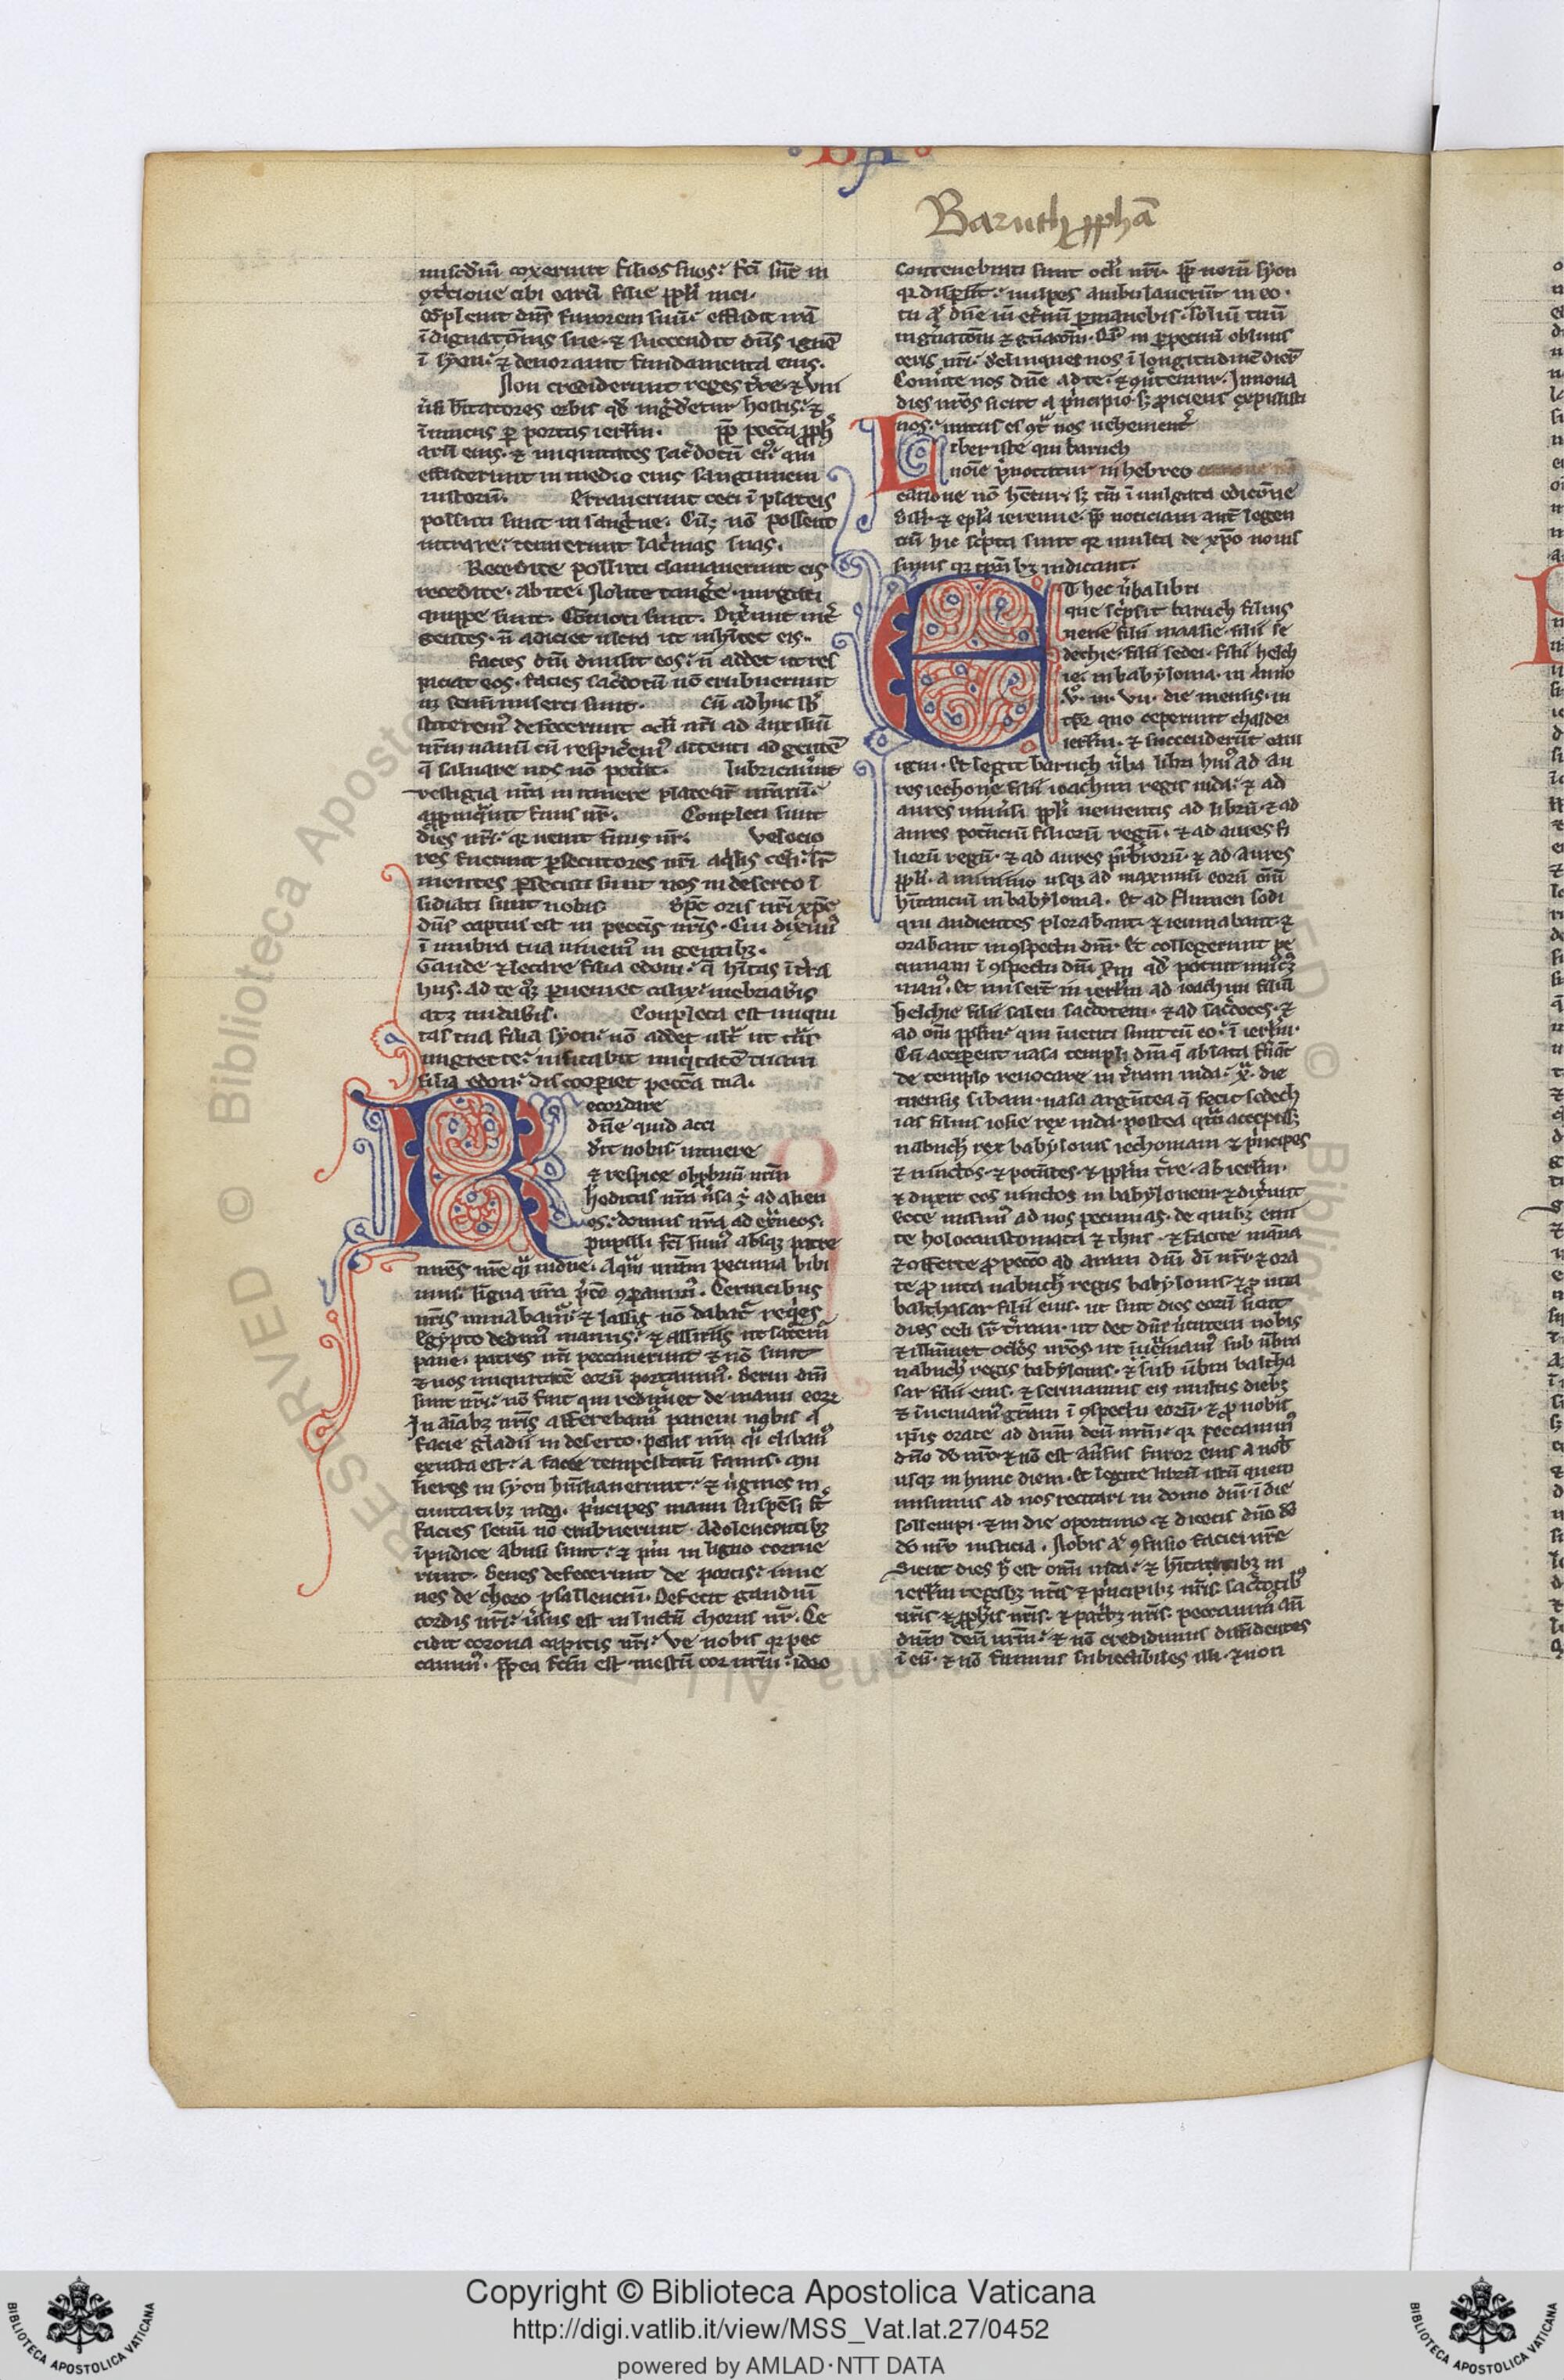 BA
Baruth ꝓph̄a
misc̄diū coxerunt filios suos. fc̄i sūt in
ꝯtͥcione cibi earū filie ppl̓i mei.
Cōpleuit dn̄s furorem suū. effudit irā
īdignatōnis sue. ⁊ succendit dn̄s ignē
ī syon. ⁊ deuorauit fundamenta eius.
Non crediderunt reges t̄re. ⁊ vniu
ūsi h̄itatores orbis qd̓ ingͣderetur hostis. ⁊
īimicus ꝑ portas ierl̄m. ꝓp̄ pecc̄a ꝓph̓
aru̅ eius. ⁊ iniquitates sac̓dotū ei᷒. qui
effuderunt in medio eius sanguinem
iustorū. Errauerunt ceci ī plateis
polluti sunt in sang̓ne. Cūꝫ nō possent
intrare. tenuerunt lac̓inias suas.
Recedite polluti clamauerunt eis
recedite. abite. Nolite tang̓e. iurgati
quippe sunt. Cōmoti sunt. Dix̓unt int̓
gentes. n̄ adiciet ultra ut inh̄itet eis.
Facies dn̄i diuisit eos. n̄ addet ut res
piciat eos. Facies sac̓dotū nō erubuerunt
nꝫ senū miserti sunt. Cū adhuc sb̓
sisterem᷒ defecerunt ocl̓i nr̄i ad auxiliū
nr̄m uanū cū respic̓em᷒ attenti ad gentē
q̄ saluare nos nō pot̓at. lubricaūt
vestigia nr̄a in itinere platear̄ nr̄arū.
appīquͣuit finis nr̄. Conpleti sunt
dies nr̄i. qꝛ uenit finis nr̄. velocio
res fuerunt ꝑsecutores nr̄i aql̓is celi. sr̄
montes ꝑsecuti sunt nos in deserto ī
sidiati sunt nobis Sp̄c oris nr̄i xp̄c
dn̄s captus est in pecc̄is nr̄is. Cui dixim᷒
ī umbra tua uiuem᷒ in gentibꝫ.
Gaude ⁊ letare filia edom. q̄ h̄itas ī t̓ra
hus. ad te qͦꝫ ꝑueniet calix. inebriab̓is
atꝫ nudab̓is. Conpleta est iniqui
tas tua filia syon. nō addet ult̓ ut tͣns
migret te. uisitabit iniqͥtatē tuam
filia edom. discooꝑiet pecc̄a tua.
Recordare
dn̄e quid acci
d̓it nobis. intuere
⁊ respice obꝓbriū nr̄m
h̓editas nr̄a ūsa ē ad alien
os. domus nr̄a ad ext̓neos.
pupilli fc̄i sum᷒ absqꝫ patre
mr̄es nr̄e qͣi uidue. Aqͣm nr̄am pecunia bibi
mus. ligna nr̄a p̓cio ꝯparauim᷒. Ceruicibus
nr̄is minabam᷒. ⁊ lassis nō dabat᷑ reqͥes
Egypto dedim᷒ manus. ⁊ assiriis ut sat̓em᷑
pane. patres nr̄i peccauerunt ⁊ nō sunt
⁊ nos iniquitatē eorū portauim᷒. Serui dn̄i
sunt nr̄i. nō fuit qui redim̓et de manu eoꝝ
In aīabꝫ nr̄is afferebam᷒ panem nobis a
facie gladii in deserto. pellis nr̄a qͣi clibān᷒
exusta est. a facie tempestatū famis. mu
lieres in syon hūiliauerunt. ⁊ uirgines in
ciuitatibꝫ iuda. p̓ncipes manu suspensi st̄
facies senū nō erubuerunt. Adolescentibꝫ
īpudice abusi sunt. ⁊ pu̓i in ligno corrue
runt. Senes defecerunt de portis. iuue
nes de choro psallenciū. Defecit gaudiū
cordis nr̄i. ūsus est in luctū chorus nr̄. Ce
cidit corona capitis nr̄i. Ve nobis qꝛ pec
cauim᷒. ꝓpt̓ea fc̄m est mestū cor nr̄m. ideo
Contenebrati sunt ocl̓i nr̄i. ꝓp̄ montē syon
qꝛ disꝑiit. uulpes ambulauerūt in eo.
tu aūt dn̄e in et̓nū ꝑmanebis. solium tuū
in gn̄atōm ⁊ gn̄atōm. Qr̄e in ꝑpetuū obliuis
ceris nr̄i. derelinques nos ī longitudinē dieꝝ
Conu̓te nos dn̄e ad te. ⁊ ꝯu̓temur. Innoua
dies nr̄os sicut a p̓ncipio. sꝫ ꝓiciens reppulisti
nos. iratus es ꝯtͣ nos uehement̓
Liber iste qui baruch
noīe p̓notatur in hebreo
canone nō het̄ur. sꝫ tm̄ ī uulgata editōne
Sil̓r ⁊ epl̄a ieremie. ꝓp̄ noticiam aūt legen
tiū hic sc̓pta sunt qꝛ multa de xp̄o nouis
simis qꝫ tp̄ribꝫ indicant.
Et hec ūba libri
que sc̓psit baruch filius
nerie filii maasie. filii se
dechie. filii sedei. filii helch
ie. in babylonia. in anno
v᷒. in. vii. die mensis. in
tp̄r quo ceperunt chaldei
ierl̄m. ⁊ succenderūt eam
igni. Et legit baruch ūba libri hui᷒ ad au
res iechonie filii ioachim regis iuda. ⁊ ad
aures uniu̓si ppl̓i uenientis ad librū. ⁊ ad
aures potenciū filiorū regū. ⁊ ad aures fi
liorū regū. ⁊ ad aures pr̄br̄orū. ⁊ ad aures
ppl̓i. a minimo usqꝫ ad maximū eorū om̄iū
h̄itanciū in babylonia. Et ad flumen sodi
qui audientes plorabant. ⁊ ieiunabant. ⁊
orabant in ꝯspectu dn̄i. Et collegerunt pe
cuniam ī ꝯspectu dn̄i scd̄m qd̓ potuit uniͥcꝫ
man᷒. Et miser̄t in ierl̄m ad ioachim filiū
helchie filii salon sac̓dotem. ⁊ ad sac̓dotes. ⁊
ad om̄ ppl̄m. qui īuenti sunt cū eo. ī ierl̄m.
Cū acciperent uasa templi dn̄i q̄ ablata fu̓āt
de templo reuocare in t̓ram iuda. xͣ. die
mensis siban. uasa argentea q̄ fecit sedech
ias filius iosie rex iuda. postea qͣm accepiss̄
nabuch̓ rex babylonis iechoniam ⁊ p̓ncipes
⁊ uinctos. ⁊ potētes. ⁊ ppl̄m t̓re. ab ierl̄m.
⁊ duxit eos uinctos in babylonem. ⁊ dix̓unt
Ecce misim᷒ ad nos pecunias. de quibꝫ emi
te holocaustomata ⁊ thus. ⁊ facite mana
⁊ offerte ꝓ pecc̄o ad aram dn̄i di̅ nr̄i. ⁊ ora
te ꝓ uita nabuch̓ regis babylonis. ⁊ ꝓ uita
balthasar filii eius. ut sint dies eorū sicut
dies celi sr̄ t̓ram. ut det dn̄s u̓tutem nobis
⁊ illumīet oculos nr̄os. ut īuiuam᷒ sub umbra
nabuch̓ regis babylonis. ⁊ sub umbra baltha
sar filii eius. ⁊ seruiamus eis multis diebꝫ
⁊ īueniam᷒ grām ī ꝯspectu eorū. ⁊ ꝓ nobis
ipsis orate ad dn̄m deū nr̄m. qꝛ peccauim᷒
dn̄o dō nr̄o. ⁊ nō est au̓sus furor eius a nob̓
usqꝫ in hunc diem. Et legite librū istū quem
misimus ad nos recitari in domo dn̄i. ī die
sollempni. ⁊ in die oportuno ⁊ dicetis dn̄o dō
dō nr̄o iusticia. Nobis aūt ꝯfusio faciei nr̄e
Sicut dies h̄ est om̄i iuda. ⁊ h̄itantibꝫ in
ierl̄m regibꝫ nr̄is ⁊ p̓ncipibꝫ nr̄is. sac̓dotib᷒
nr̄is ⁊ ꝓph̓is nr̄is. ⁊ patribꝫ nr̄is. peccauim᷒ an̄
dn̄m deū nr̄m. ⁊ nō credidimus diffidentes
ī eū. ⁊ nō fuimus subiectibiles illi. ⁊ non
Copyright © Biblioteca Apostolica Vaticana
http://digi.vatlib.it/view/MSS_Vat.lat.27/0452
powered by AMLAD·NTT DATA
BIBLIOTECA APOSTOLICA VATICANA
BIBLIOTECA APOSTOLICA VATICANA